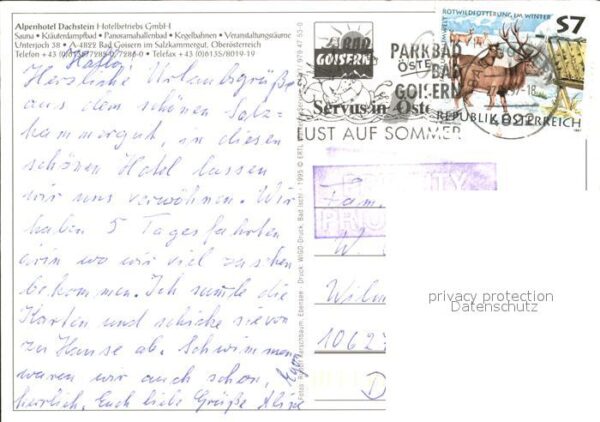 Alpenhotel Dachstein Hotelbetriebs GmbH
Sauna • Kräuterdampfbad • Panoramahallenbad • Kegelbahnen • Veranstaltungsräume
Unterjoch 38 • A-4822 Bad Goisern im Salzkammergut, Oberösterreich
Telefon +43 (0)6135/
Telefax +43 (0)6135/8019-19
Hallo,
Herzliche Urlaubsgrüße
aus dem schönen Salz-
kammergut, in diesen
schönen Hotel lassen
wir uns verwöhnen. Wir
haben 5 Tagesfahrten
drin wo wir viel zu sehen
bekommen. Ich sammle die
Karten und schicke sie von
zu Hause ab. Schwimmen
waren wir auch schon,
herzlich. Euch liebe Grüße
Egon
Fotos
Kerschbaum, Ebensee - Druck: WIGO-Druck, Bad Ischl - 1995 © ERTL
BAD
GOISERN
Servus in Öste
LUST AUF SOMMER
PARKBAD
BAD
GOISERN
ROTWILDFÜTTERUNG IM WINTER
S7
REPUBLIK ÖSTERREICH
Fam.
W.
Wilm
10627
D
privacy protection
Datenschutz